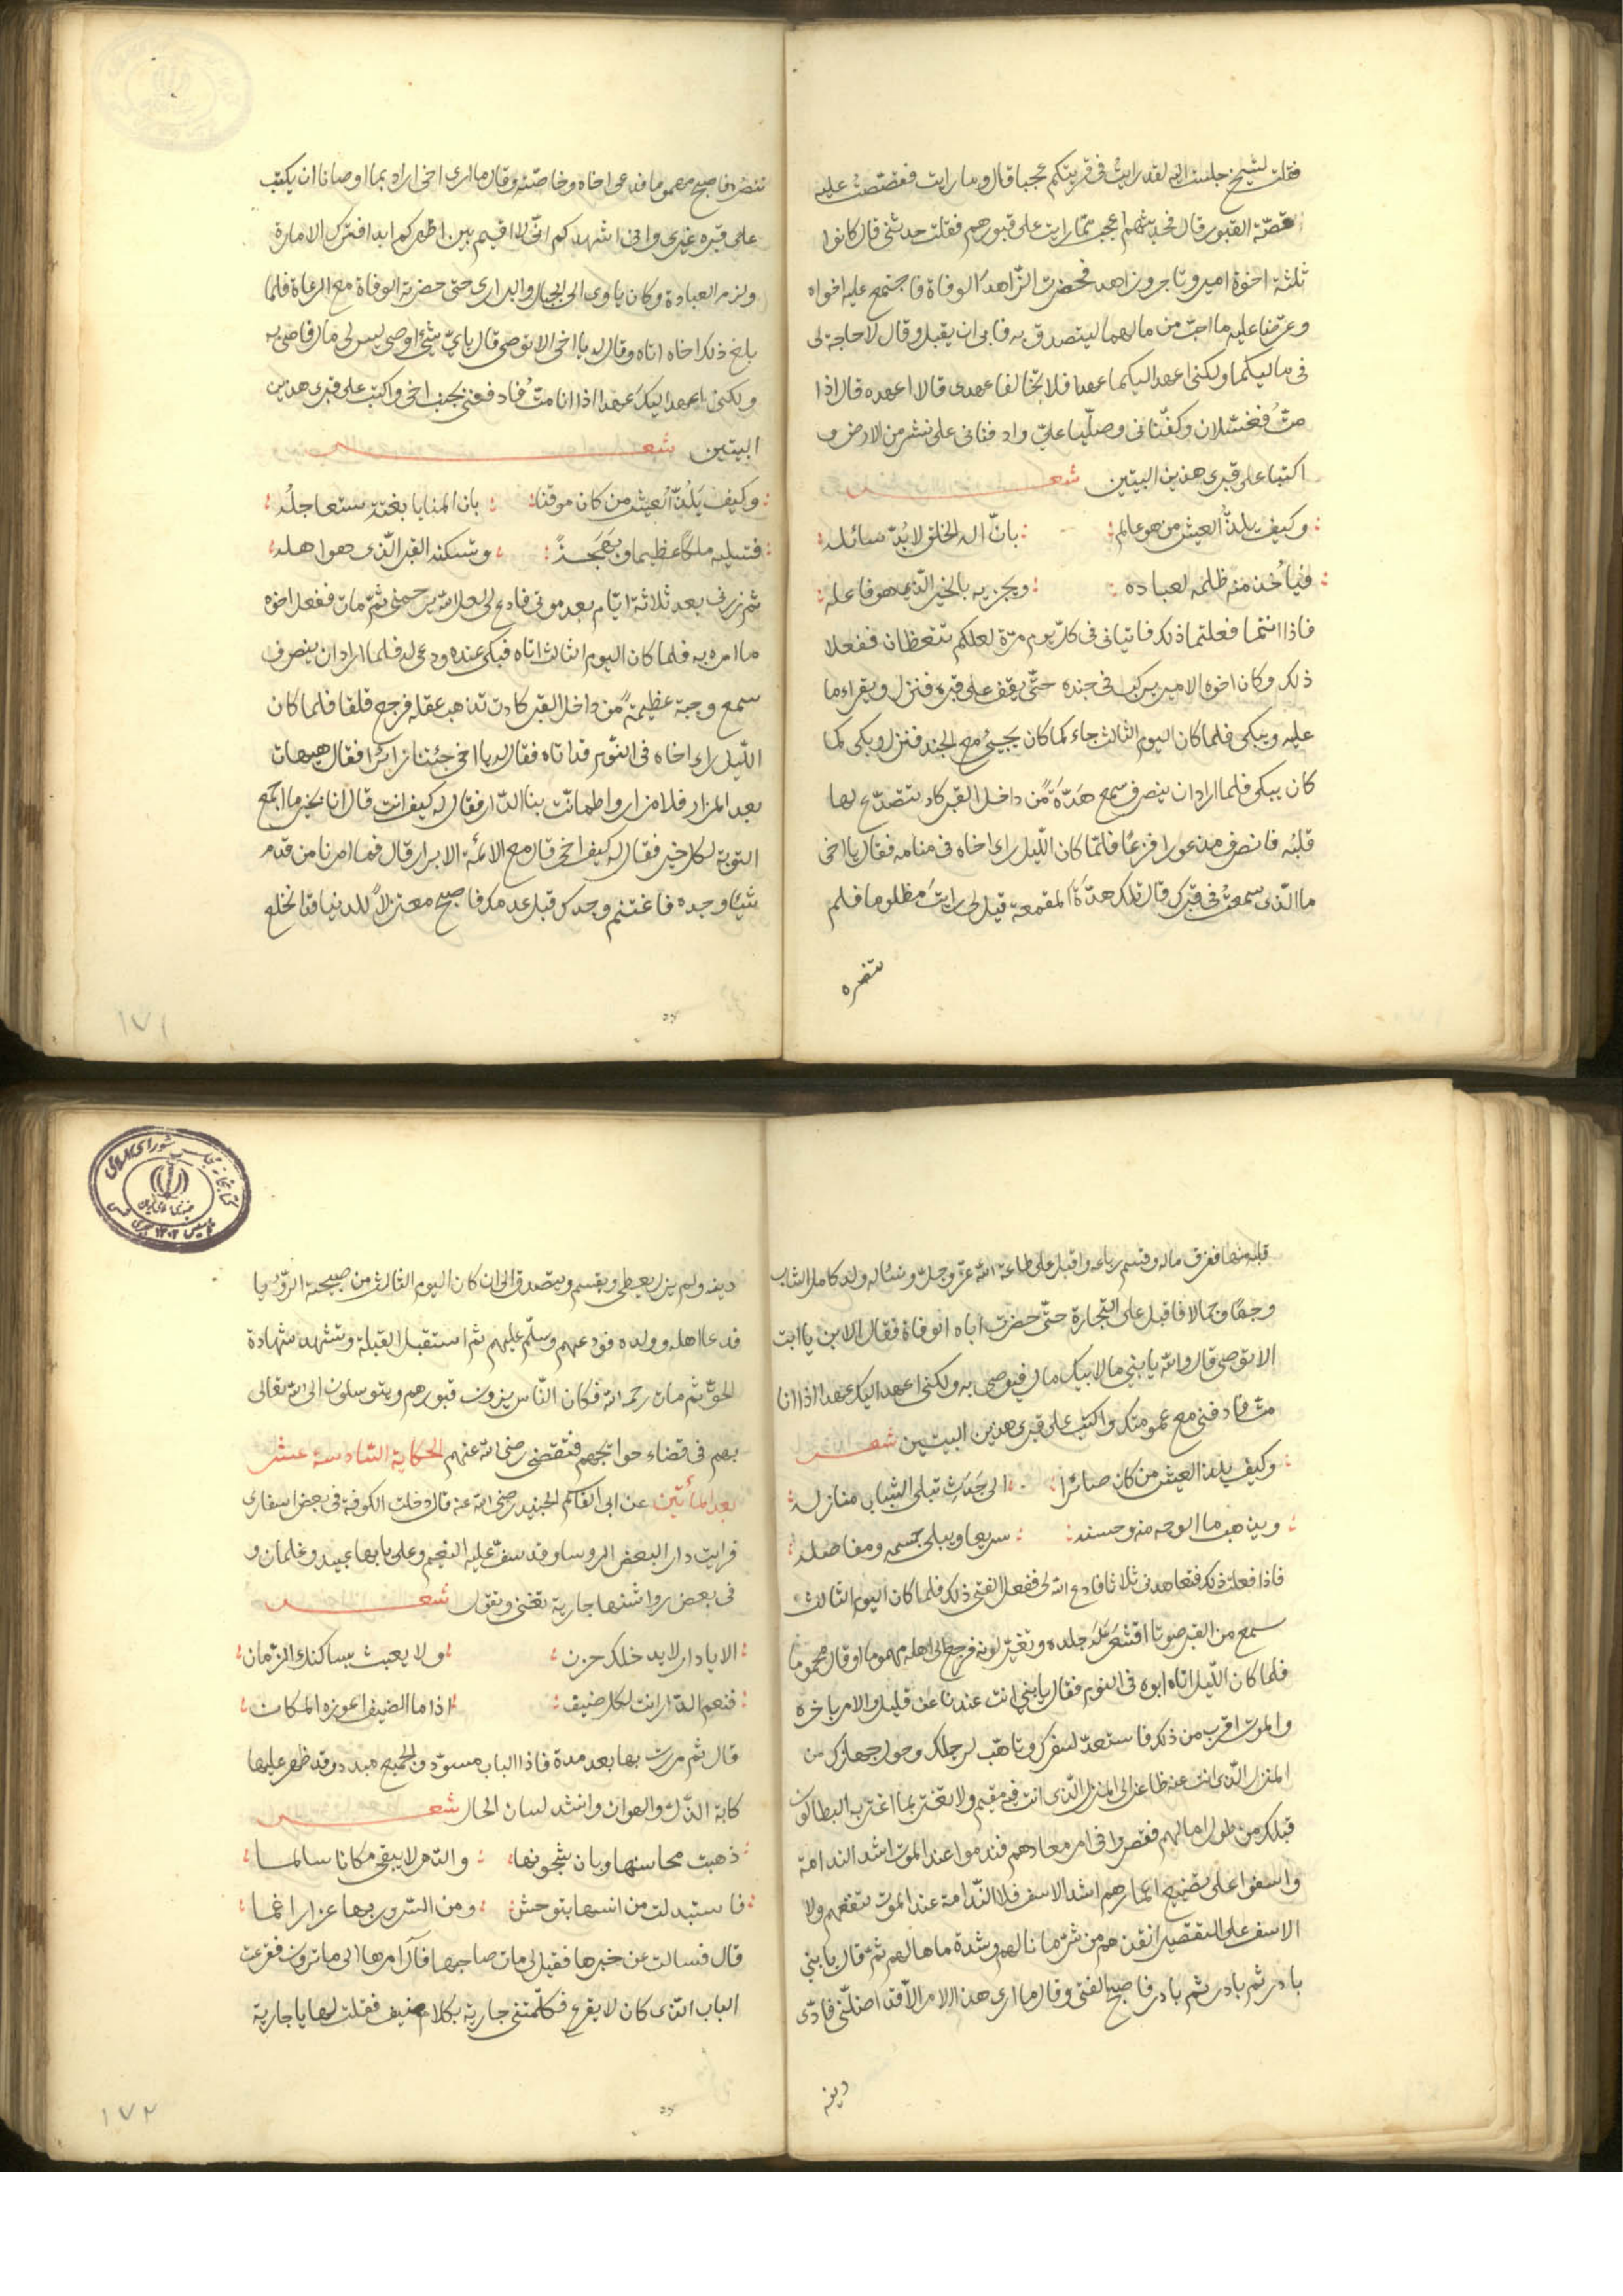 فقلت لشيخ جلست اليه لقد رايت فى قريتكم عجبا قال وما رايت فقصصت عليه
قصّة القبور قال فحديثهم اعجب ممّا رايت على قبورهم فقلت حدثنى قال كانوا
ثلثة اخوة امير وتاجر وزاهد فحضرت الزّاهد الوفاة فاجتمع عليه اخواه
وعرضا عليه ما احبّ من مالهما ليتصدق به فابى ان يقبل وقال لا حاجة لى
فى ماليكما ولكنى اعهد اليكما عهدا فلا تخالفا عهدى قالا اعهده قال اذا
متّ فغسّلان وكفّنانى وصلّيا علىّ وادفنانى على نشز من الارض و
اكتبا على قبرى هذين البيتين شعر
وكيف يلذّ العيش من هو عالم بانّ اله الخلق لابُدّ سائله
فياخذ منه ظلمه لعباده ويجزيه بالخير الّذى هو فاعله
فاذا انتما فعلتما ذلك فاتيانى فى كلّ يوم مرّة لعلكم تتعظان ففعلا
ذلك وكان اخوه الامير يركب فى جنده حتّى يقف على قبره فنزل ويقراء ما
عليه ويبكى فلما كان اليوم الثالث جاء كما كان يجيئ مع الجند فنزل وبكى كما
كان يبكى فلما اراد ان ينصرف سمع هَدّةً من داخل القبر كاد يتصدّع لها
قلبُه فانصرف مذعورا فزعًا فلمّا كان اللّيل راى اخاه فى منامه فقال يا اخى
ما الّذى سمعتُ فى قبرك قال تلك هدّة المقمعة قيل لى رايتَ مظلوما فلم
تنصره
تنصره فاصبح مهموما فدعى اخاه وخاصّته وقال ما ارى اخى اراد بما اوصانا ان يكتب
على قبره غيرى وانى اشهدكم انّى لا اقيم بين اظهركم ابدا فترك الامارة
ولزم العبادة وكان ياوى الى الجبال والبرارى حتى حضرته الوفاة مع الرعاة فلما
بلغ ذلك اخاه اتاه وقال له يا اخى الا توصى قال باىّ شئ اوصى ليس لى مال فاوصى به
ولكنى اعهد اليكَ عهدا اذا انا متُّ فادفنّى بجنب اخى واكتب على قبرى هذين
البيتين شعر
وكيف يَلذّ العيش من كان موقنا بان المنايا بغتة ستعاجلُه
فتسلبه ملكًا عظيما وبَهجَةً وتسكنه القبر الّذى هو اهله
ثم زرنى بعد ثلاثة ايّام بعد موتى فادع لى لعل الله يرحمنى ثمّ مات ففعل اخوه
ما امره به فلما كان اليوم الثالث اتاه فبكى عنده ودعى له فلما اراد ان ينصرف
سمع وجبة عظيمة من داخل القبر كادت تذهب عقله فرجع قلقا فلما كان
اللّيل راى اخاه فى النّوم قد اتاه فقال له يا اخى جئتنا زائرًا فقال هيهات
بعد المزار فلا مزار واطمانّت بنا الدّار فقال له كيف انت قال انا بخير ما اجمع
التوبة لكل خير فقال له كيف اخى قال مع الائمّة الابرار قال فما امرنا من قدم
شيئا وجده فاغتنم وجدك قبل عدمك فاصبح معتزلاً للدنيا قد انخلع
١٧١
قلبه منها ففرق ماله وقسم رباعه واقبل على طاعة الله عزّ وجلّ ونشا له ولد كامل الشاب
وجهًا وجمالا فاقبل على التجارة حتّى حضرت اباه الوفاة فقال الابن يا ابت
الا توصى قال والله يا بنى ما لابيك مال فيوصى به ولكنى اعهد اليك عهدا اذا انا
متّ فادفنى مع عمومتك واكتب على قبرى هذين البيتين شعر
وكيف يلذ العيش من كان صائرا الى جَدَثٍ تبلى الشباب منازله
ويذهب ماء الوجه منه وحسنه سريعا ويبلى جسمه ومفاصله
فاذا فعلت ذلك فتعاهدنى ثلاثا فادع الله لى ففعل الفتى ذلك فلما كان اليوم الثالث
سمع من القبر صوتا اقشعرّ له جلده وتغيّر لونه فرجع الى اهله مهموما او قال محموما
فلما كان اللّيل اتاه ابوه فى النوم فقال يا بنى انت عندنا عن قليل والامر باخره
والموت اقرب من ذلك فاستعدّ لسفرك وتاهّب لرحلك وحول جهازك من
المنزل الّذى انت عنه ظاعن الى المنزل الّذى انت فيه مقيم ولا تغتر بما اغتر به البطالون
قبلك من طول امالهم فقصروا فى امر معادهم فندموا عند الموت اشد الندامة
واسفوا على تضييع اعمارهم اشد الاسف فلا النّدامة عند الموت تنفعهم ولا
الاسف على التقصير انقذهم من شرّ ما نالهم وشدة ما هالهم ثمّ قال يا بنى
بادر ثم بادر ثم بادر فاصبح الفتى وقال ما ارى هذا الامر الّا قد اضلّنى فادّى
دينه
دينه ولم يزل يعطى ويقسم ويتصدق الى ان كان اليوم الثالث من صبيحة الرّؤيا
فدعا اهله وولده فودّعهم وسلّم عليهم ثم استقبل القبلة وتشهد شهادة
الحقّ ثم مات رحمه الله فكان النّاس يزورون قبورهم ويتوسلون الى الله تعالى
بهم فى قضاء حوائجهم فتقضى رضى الله عنهم الحكاية السّادسة عشر
بعد المأتين عن ابى القاسم الجنيد رضى الله عنه قال دخلت الكوفة فى بعض اسفارى
فرايت دار البعض الروسا وقد سفّ عليه النعيم وعلى بابها عبيد وغلمان و
فى بعض رواشنها جارية تغنى وتقول شعر
الا يا دار لا يدخلك حزن ولا يعبث بساكنك الزّمان
فنعم الدّار انت لكل ضيف اذا ما الضيف اعوزه المكان
قال ثم مررت بها بعد مدة فاذا الباب مسودّ والجميع مبدد وقد ظهر عليها
كابة الذّل والهوان وانشد لسان الحال شعر
ذهبت محاسنها وبان شجونها والدّهر لا يبقى مكانا سالما
فاستبدلت من انسها بتوحش ومن السّرور بها عزا راغما
قال فسالت عن خبرها فقيل لى مات صاحبها فآل امرها الى ما ترون فقرعت
الباب الّذى كان لا يقرع فكلّمتنى جارية بكلام ضعيف فقلت لها يا جارية
١٧٢